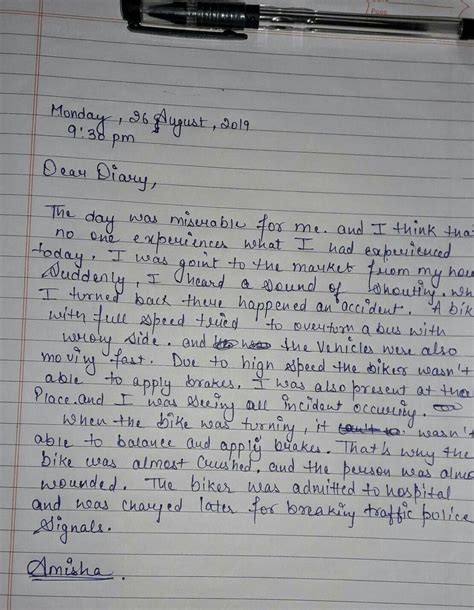 Page
Monday, 26 August, 2019
9:30 pm
Dear Diary,
The day was miserable for me. and I think tha
no one experiences what I had experienced
today. I was goint to the market from my hou
Suddenly, I heard a sound of shouting. Wh
I turned back there happened an accident. A bik
with full speed tried to overturn a bus with
wrong side. and the vehicles were also
moving fast. Due to high speed the biker wasn't
able to apply brakes. I was also present at tha
Place.and I was seeing all incident occuring.
When the bike was turning, it wasn't
able to balance and apply brakes. That's why the
bike was almost Crushed. and the person was almo
wounded. The biker was admitted to hospital
and was charged later for breaking traffic police
Signals.
Amisha.